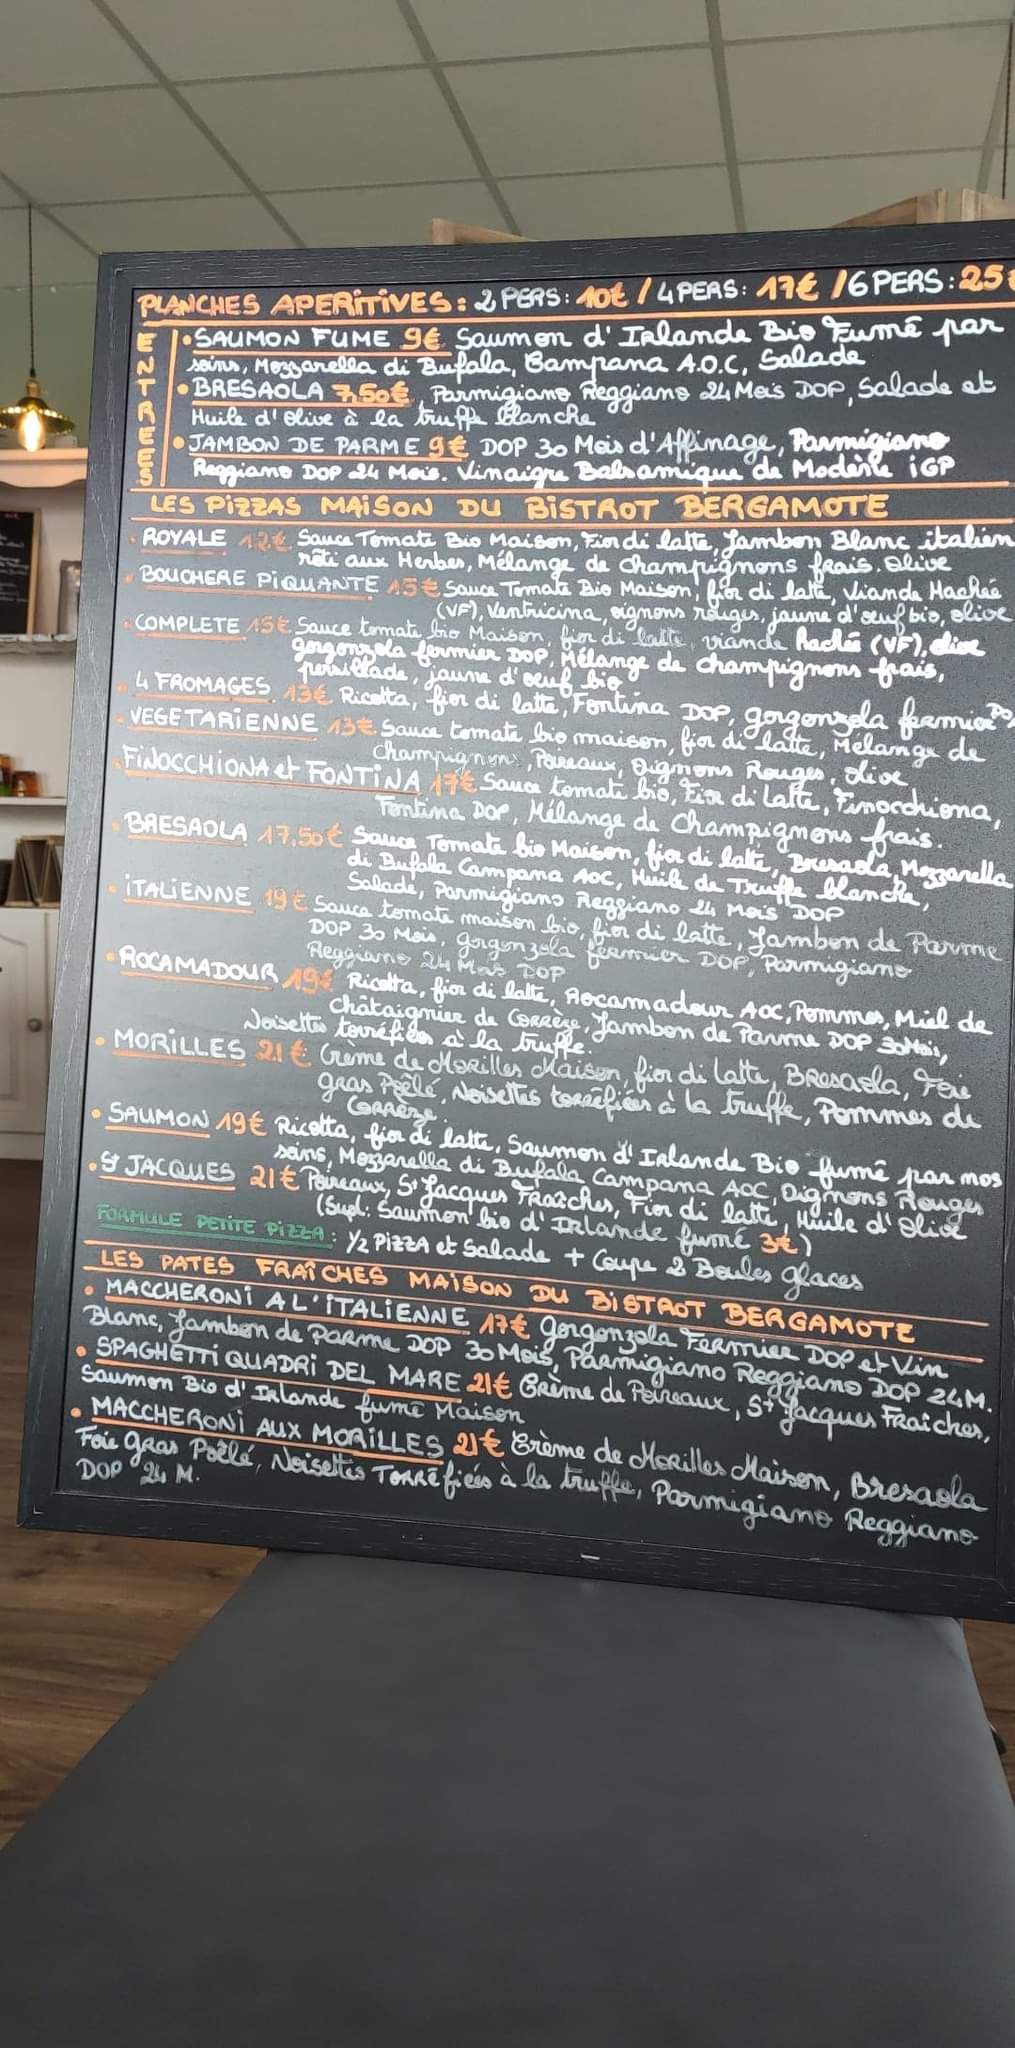 PLANCHES APERITIVES: 2 PERS: 10€ / 4 PERS: 17€ / 6 PERS: 25€
ENTREES
• SAUMON FUME 9€ Saumon d'Irlande Bio Fumé par
soins, Mozzarella di Bufala, Campana A.O.C, Salade
• BRESAOLA 7,50€, Parmigiano Reggiano 24 Mois DOP, Salade et
Huile d'olive à la truffe blanche
• JAMBON DE PARME 9€ DOP 30 Mois d'Affinage, Parmigiano
Reggiano DOP 24 Mois. Vinaigre Balsamique de Modène iGP
LES PIZZAS MAISON DU BISTROT BERGAMOTE
• ROYALE 12€ Sauce Tomate Bio Maison, Fior di latte, Jambon Blanc italien
rôti aux Herbes, Mélange de champignons frais. Olive
• BOUCHERE PIQUANTE 15€ Sauce Tomate Bio Maison, fior di latte, Viande Hachée
(VF), Ventricina, oignons rouges, jaune d'œuf bio, olive
• COMPLETE 15€ Sauce tomate bio Maison, fior di latte, viande hachée (VF), olive
gorgonzola fermier DOP, Mélange de champignons frais,
persillade, jaune d'œuf bio
• 4 FROMAGES 13€ Ricotta, fior di latte, Fontina DOP, gorgonzola fermier
• VEGETARIENNE 13€ Sauce tomate bio maison, fior di latte, Mélange de
champignons, Poireaux, Oignons Rouges, olive
• FINOCCHIONA et FONTINA 17€ Sauce tomate bio, Fior di Latte, Finocchiona,
Fontina DOP, Mélange de Champignons frais.
• BRESAOLA 17,50€ Sauce Tomate bio Maison, fior di latte, Bresaola, Mozzarella
di Bufala Campana AOC, Huile de Truffe blanche,
Salade, Parmigiano Reggiano 24 Mois DOP
• iTALiENNE 19€ Sauce tomate maison bio, fior di latte, Jambon de Parme
DOP 30 Mois, gorgonzola fermier DOP, Parmigiano
Reggiano 24 Mois DOP
• ROCAMADOUR 19€ Ricotta, fior di latte, Rocamadour AOC, Pommes, Miel de
Châtaignier de Corrèze, Jambon de Parme DOP 30 Mois,
Noisettes torréfiées à la truffe.
• MORILLES 21€ Crème de Morilles Maison, fior di latte, Bresaola, Foie
gras Poêlé, Noisettes torréfiées à la truffe, Pommes de
Corrèze.
• SAUMON 19€ Ricotta, fior di latte, Saumon d'Irlande Bio fumé par nos
soins, Mozzarella di Bufala Campana AOC, Oignons Rouges
• St JACQUES 21€ Poireaux, St Jacques Fraîches, Fior di latte, Huile d'Olive
(Supl: Saumon bio d'Irlande fumé 3€)
FORMULE PETITE PIZZA: 1/2 PIZZA et Salade + Coupe 2 Boules glaces
LES PATES FRAÎCHES MAISON DU BISTROT BERGAMOTE
• MACCHERONI A L'ITALIENNE 17€ Gorgonzola Fermier DOP et Vin
Blanc, Jambon de Parme DOP 30 Mois, Parmigiano Reggiano DOP 24 M.
• SPAGHETTI QUADRI DEL MARE 21€ Crème de Poireaux, St Jacques Fraîches,
Saumon Bio d'Irlande fumé Maison
• MACCHERONI AUX MORILLES 21€ Crème de Morilles Maison, Bresaola
Foie Gras Poêlé, Noisettes Torréfiées à la truffe, Parmigiano Reggiano
DOP 24 M.